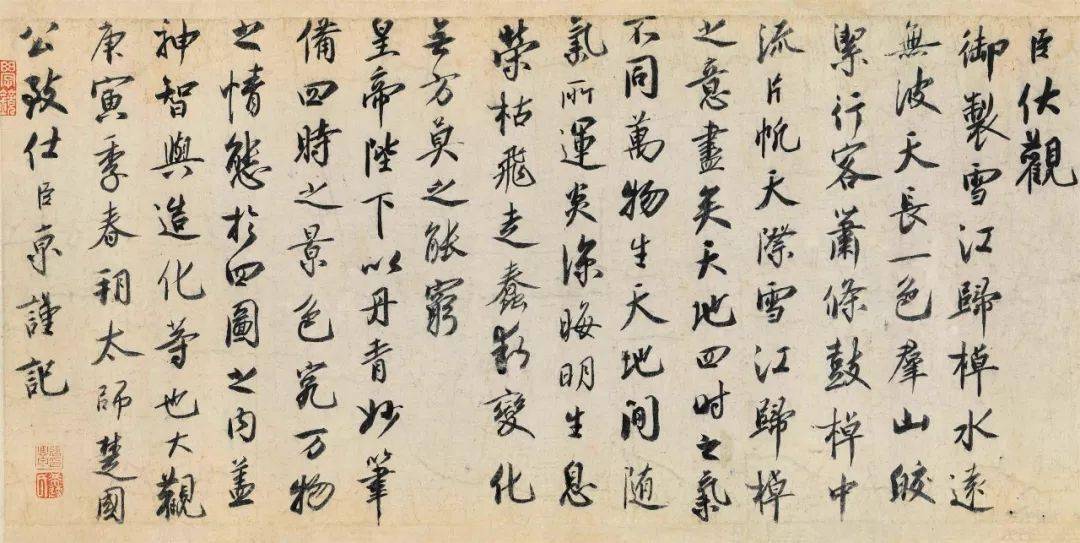 臣伏觀
御製雪江歸棹水遠
無波天長一色羣山皎
潔行客蕭條鼓棹中
流片帆天際雪江歸棹
之意盡矣天地四时之氣
不同萬物生天地間隨
氣所運炎涼晦明生息
榮枯飛走蠢動變化
無方莫之能窮
皇帝陛下以丹青妙筆
備四時之景色究万物
之情態於四圖之内盖
神智與造化等也大觀
庚寅季春朔太師楚國
公致仕臣京謹記